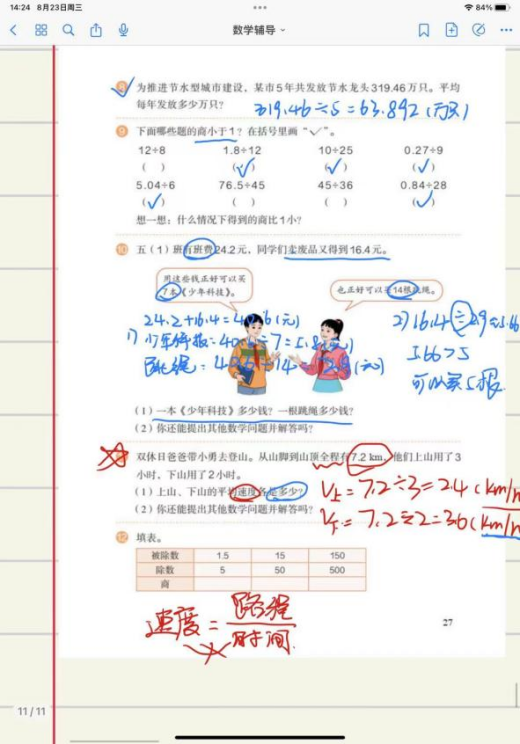 14:24 8月23日周三
84%
数学辅导
8 为推进节水型城市建设，某市5年共发放节水龙头319.46万只。平均
每年发放多少万只？
319.46÷5=63.892(万只)
9 下面哪些题的商小于1？在括号里画“✓”。
12÷8 1.8÷12 10÷25 0.27÷9
( ) (✓) (✓) (✓)
5.04÷6 76.5÷45 45÷36 0.84÷28
(✓) ( ) ( ) (✓)
想一想：什么情况下得到的商比1小？
10 五（1）班有班费24.2元，同学们卖废品又得到16.4元。
用这些钱正好可以买
7本《少年科技》。
也正好可以买14根跳绳。
24.2+16.4=40.6(元)
跳绳：40.6÷14=2.9(元)
2)16.4÷2.9≈5.66
5.66>5
可以买5根
（1）一本《少年科技》多少钱？一根跳绳多少钱？
（2）你还能提出其他数学问题并解答吗？
双休日爸爸带小勇去登山。从山脚到山顶全程有7.2 km，他们上山用了3
小时、下山用了2小时。
（1）上山、下山的平均速度各是多少？
（2）你还能提出其他数学问题并解答吗？
V上=7.2÷3=2.4(km/h
V下=7.2÷2=3.6(km/h
12 填表。
被除数 1.5 15 150
除数 5 50 500
商
速度=路程/时间
27
11/11